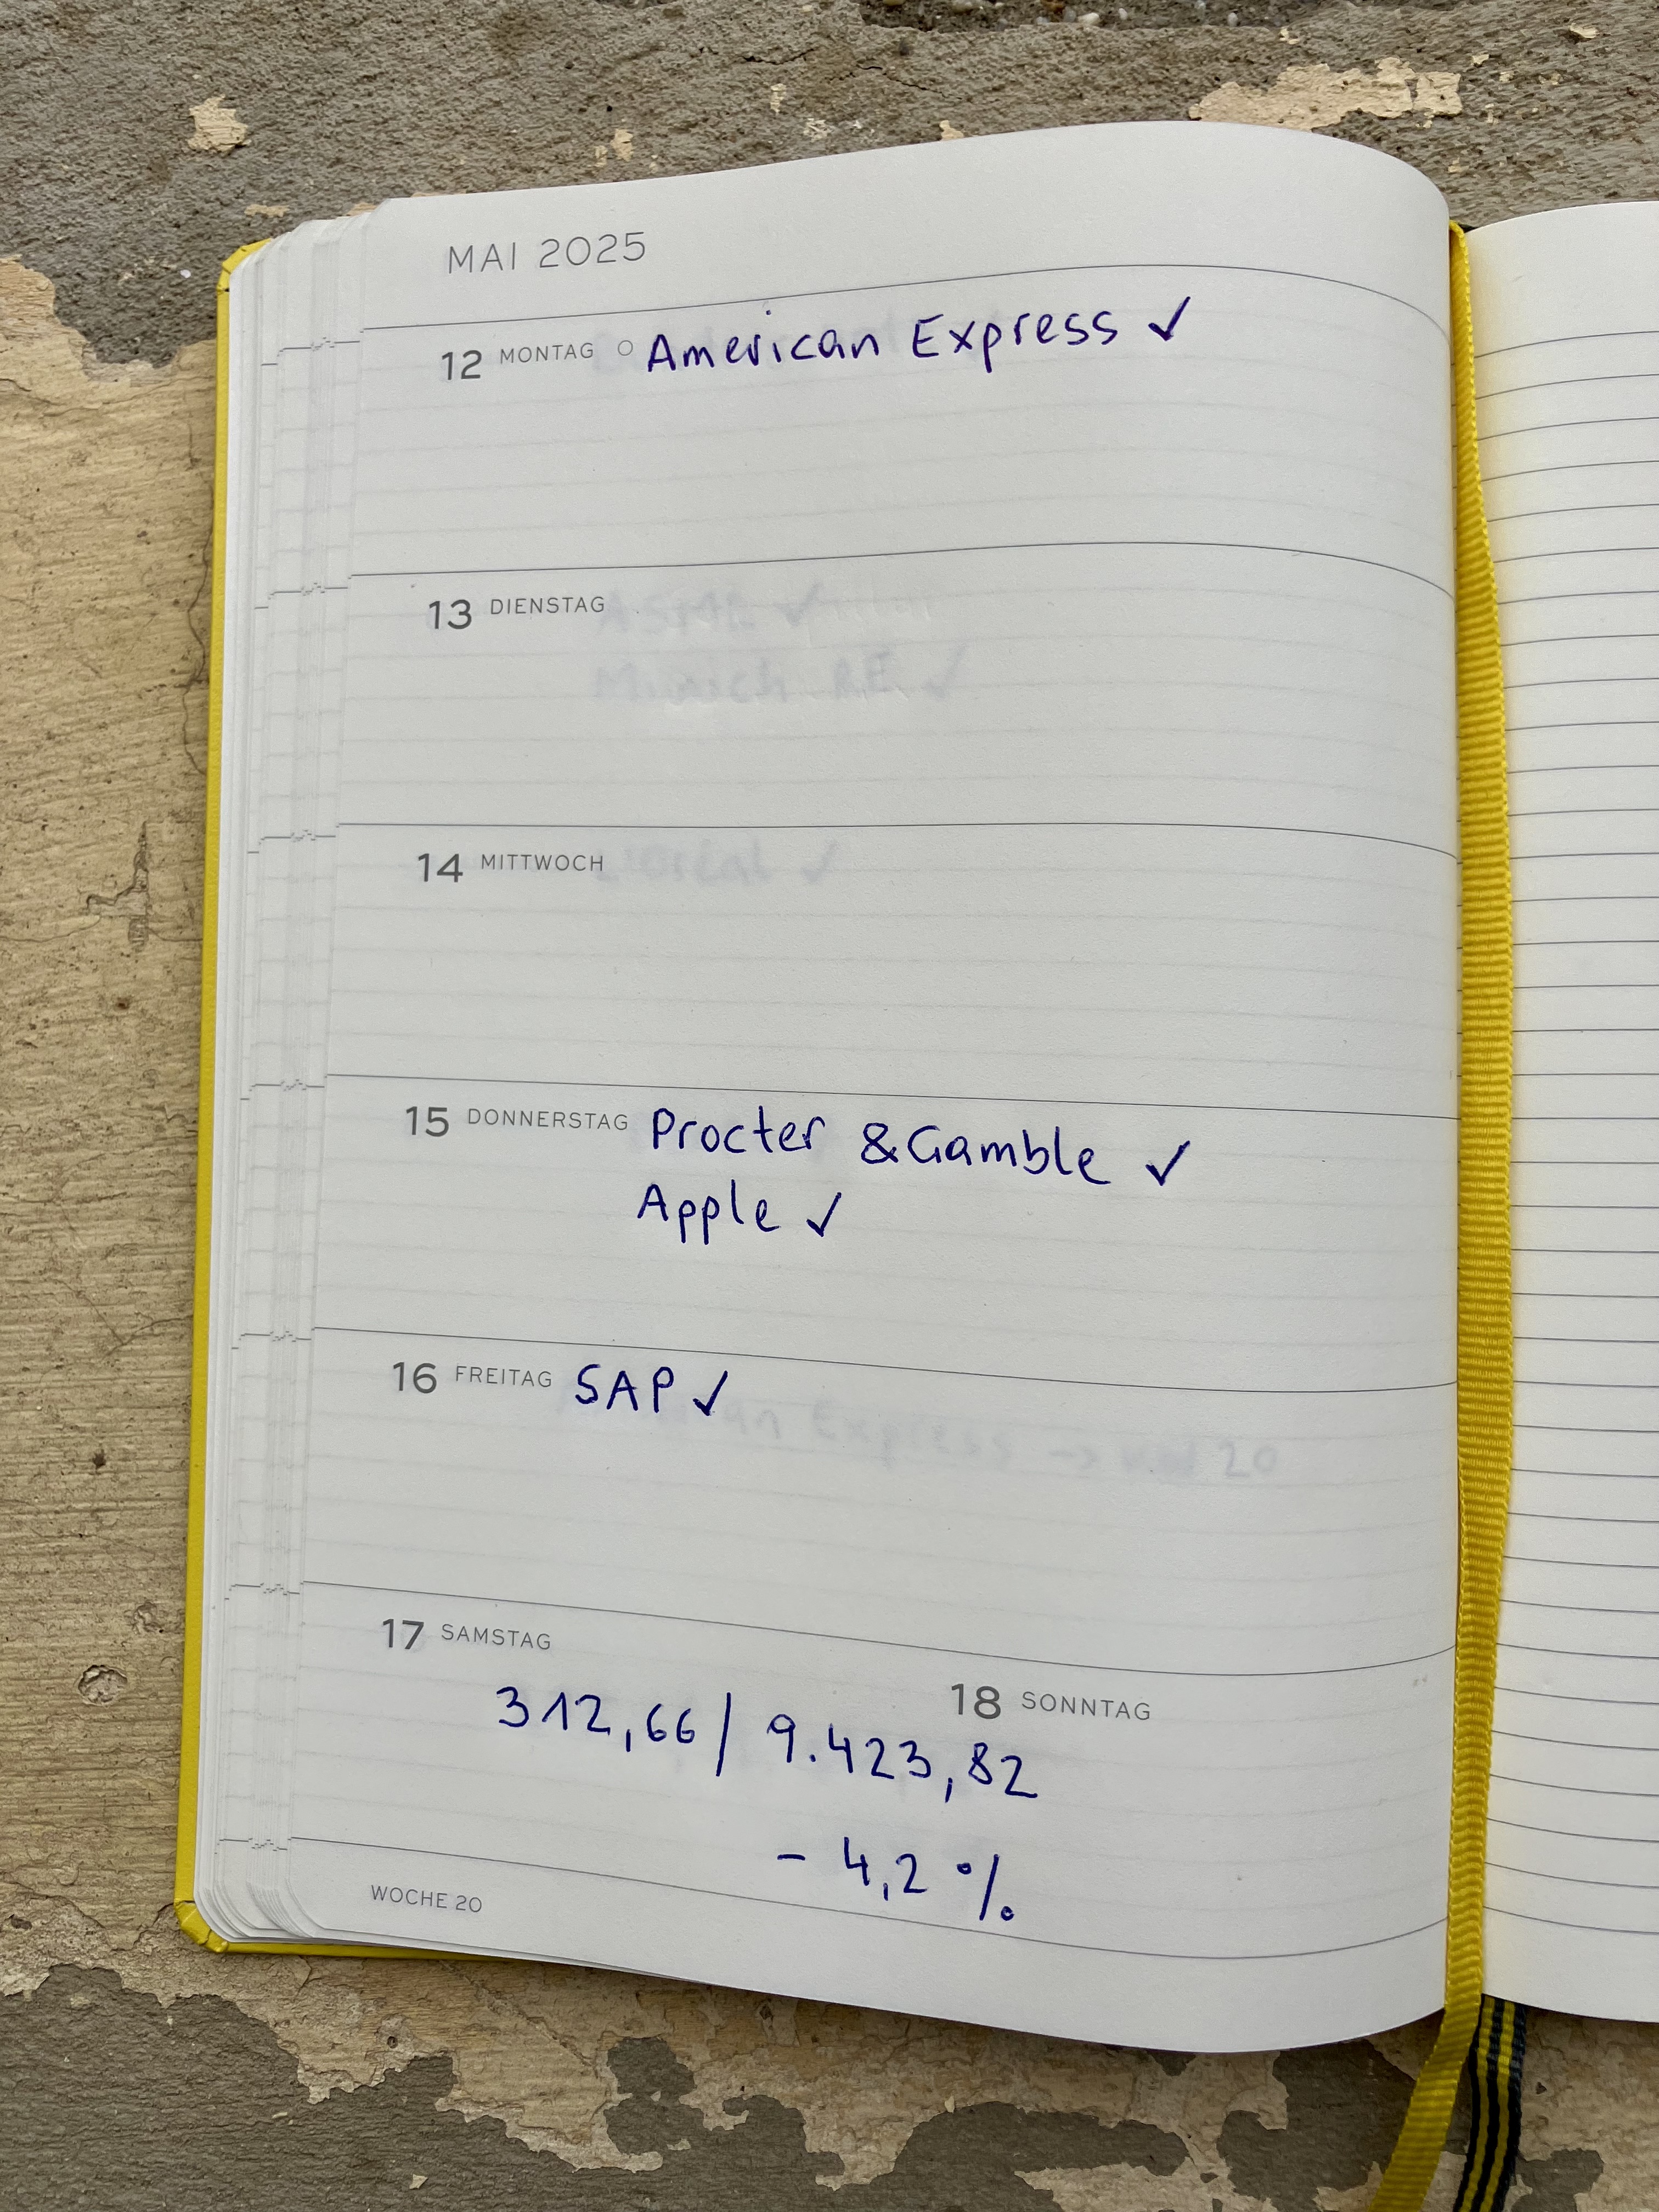 MAI 2025
12 MONTAG American Express ✓
13 DIENSTAG
ASML ✓
Munich RE ✓
14 MITTWOCH
L'Oréal ✓
15 DONNERSTAG Procter & Gamble ✓
Apple ✓
16 FREITAG SAP ✓
Express → 20
17 SAMSTAG
18 SONNTAG
312,66 / 9.423,82
- 4,2 %
WOCHE 20